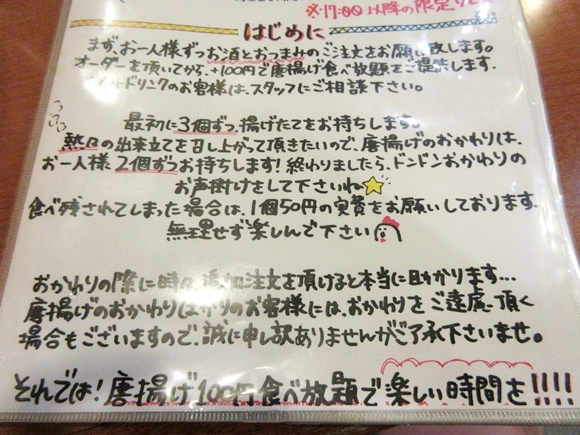 ※17:00以降の限定
はじめに
まず、お一人様ずつお酒とおつまみのご注文をお願い致します。
オーダーを頂いてから、+100円で唐揚げ食べ放題をご提供します。
ドリンクのお客様は、スタッフにご相談下さい。
最初に3個ずつ、揚げたてをお持ちします。
熱々の出来立てを召し上がって頂きたいので、唐揚げのおかわりは、
お一人様2個ずつお持ちします!終わりましたら、ドンドンおかわりの
お声掛けをして下さいね
食べ残されてしまった場合は、1個50円の実費をお願いしております。
無理せず楽しんで下さい
おかわりの際に時々、追加注文を頂けると本当に助かります...
唐揚げのおかわりばかりのお客様には、おかわりをご遠慮頂く
場合もございますので、誠に申し訳ありませんがご了承下さいませ。
それでは!唐揚げ100円食べ放題で楽しい時間を!!!!